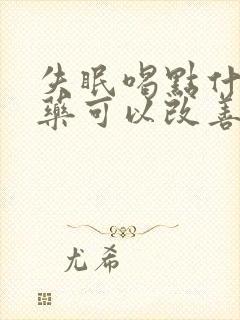 失眠喝點什
藥可以改善
尤希